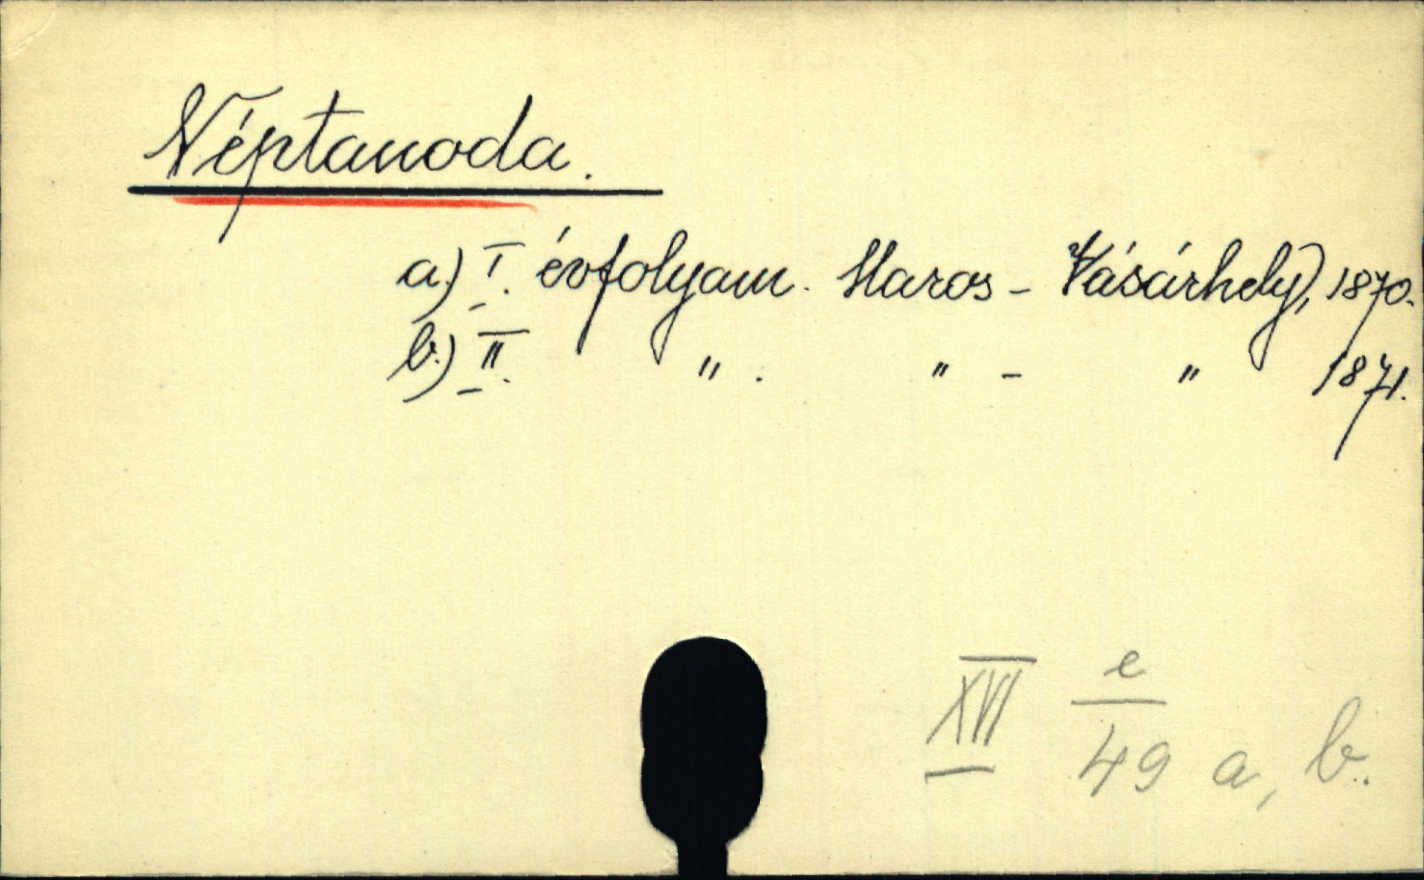 Néptanoda.
a.) I. évfolyam. Maros - Vásárhely, 1870.
b.) II. " . " - " 1871.
XVI e
49 a, b.